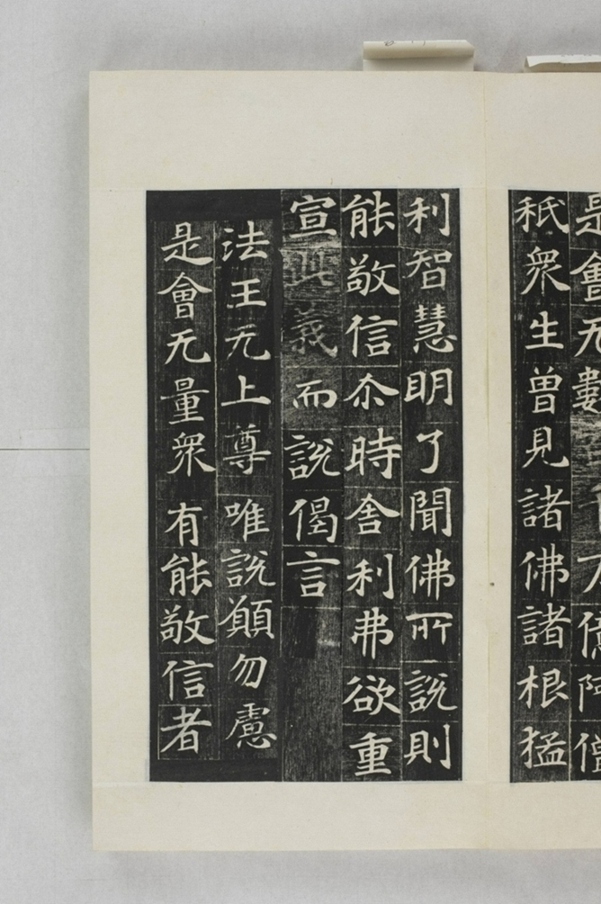 是會无數万億阿僧
秖衆生曾見諸佛諸根猛
利智慧明了聞佛所說則
能敬信尒時舍利弗欲重
宣此義而說偈言
法王无上尊 唯說願勿慮
是會无量衆 有能敬信者